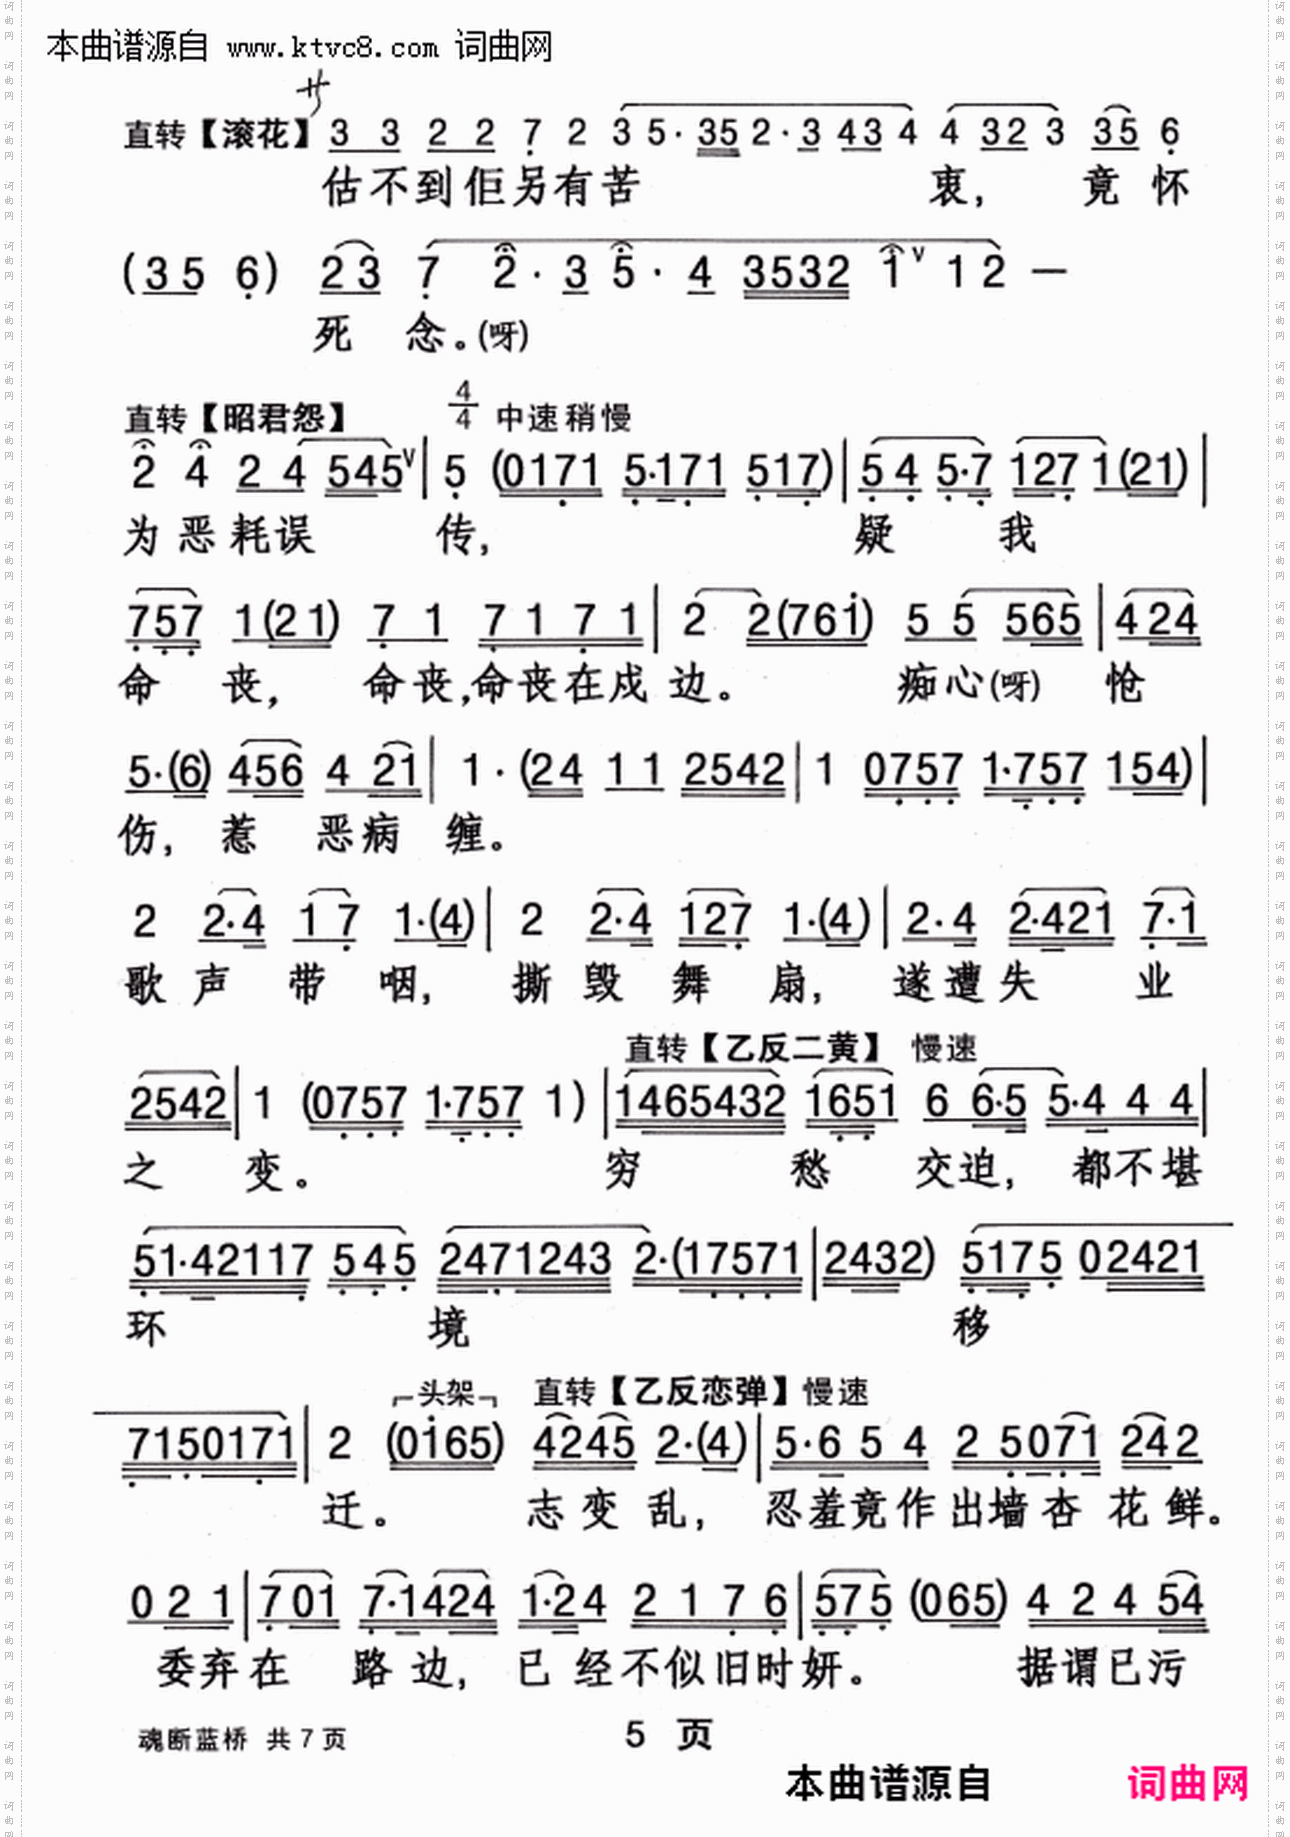 本曲谱源自 www.ktvc8.com 词曲网
直转【滚花】サ 3 3 2 2 7 2 3 5· 35 2· 3 43 4 4 32 3 35 6
估不到佢另有苦 衷, 竟 怀
(35 6) 23 7 2· 3 5· 4 3532 1 ∨ 1 2 —
死 念。(呀)
直转【昭君怨】 4/4 中速稍慢
2 4 2 4 545 ∨ | 5 (0171 5·171 517) | 5 4 5·7 127 1(21) |
为 恶 耗误 传, 疑 我
757 1(21) 7 1 7 1 7 1 | 2 2(761) 5 5 565 | 424
命 丧, 命丧,命丧在戍 边。 痴心(呀) 怆
5·(6) 456 4 21 | 1· (24 11 2542 | 1 0757 1·757 154) |
伤, 惹 恶病 缠。
2 2·4 1 7 1·(4) | 2 2·4 127 1·(4) | 2·4 2·421 7·1
歌 声 带 咽, 撕 毁 舞 扇, 遂遭失 业
直转【乙反二黄】 慢速
2542 | 1 (0757 1·757 1) | 1465432 1651 6 6·5 5·4 4 4 |
之 变。 穷 愁 交迫, 都不堪
51·42117 545 2471243 2·(17571 | 2432) 5175 02421
环 境 移
头架 直转【乙反恋弹】慢速
7150171 | 2 (0165) 4245 2·(4) | 5·6 5 4 2 5071 242
迁。 志 变 乱, 忍羞竟作 出墙杏 花 鲜。
0 2 1 | 7 01 7·1424 1·24 2 1 7 6 | 575 (065) 4 2 4 54
委弃在 路 边, 已 经不似旧时妍。 据谓已污
魂断蓝桥 共7页 5 页
本曲谱源自 词曲网